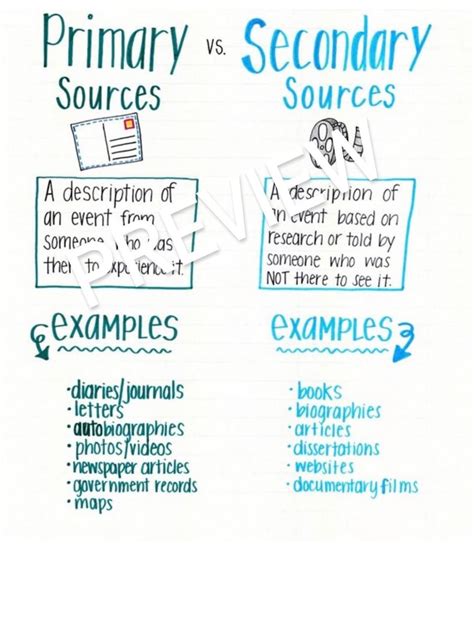 Primary vs. Secondary
Sources
Sources
A description of
an event from
someone who was
there to experience it.
A description of
an event based on
research or told by
someone who was
NOT there to see it.
PREVIEW
EXAMPLES
EXAMPLES
·diaries/journals
·letters
·autobiographies
·photos/videos
·newspaper articles
·government records
·maps
·books
·biographies
·articles
·dissertations
·websites
·documentary films